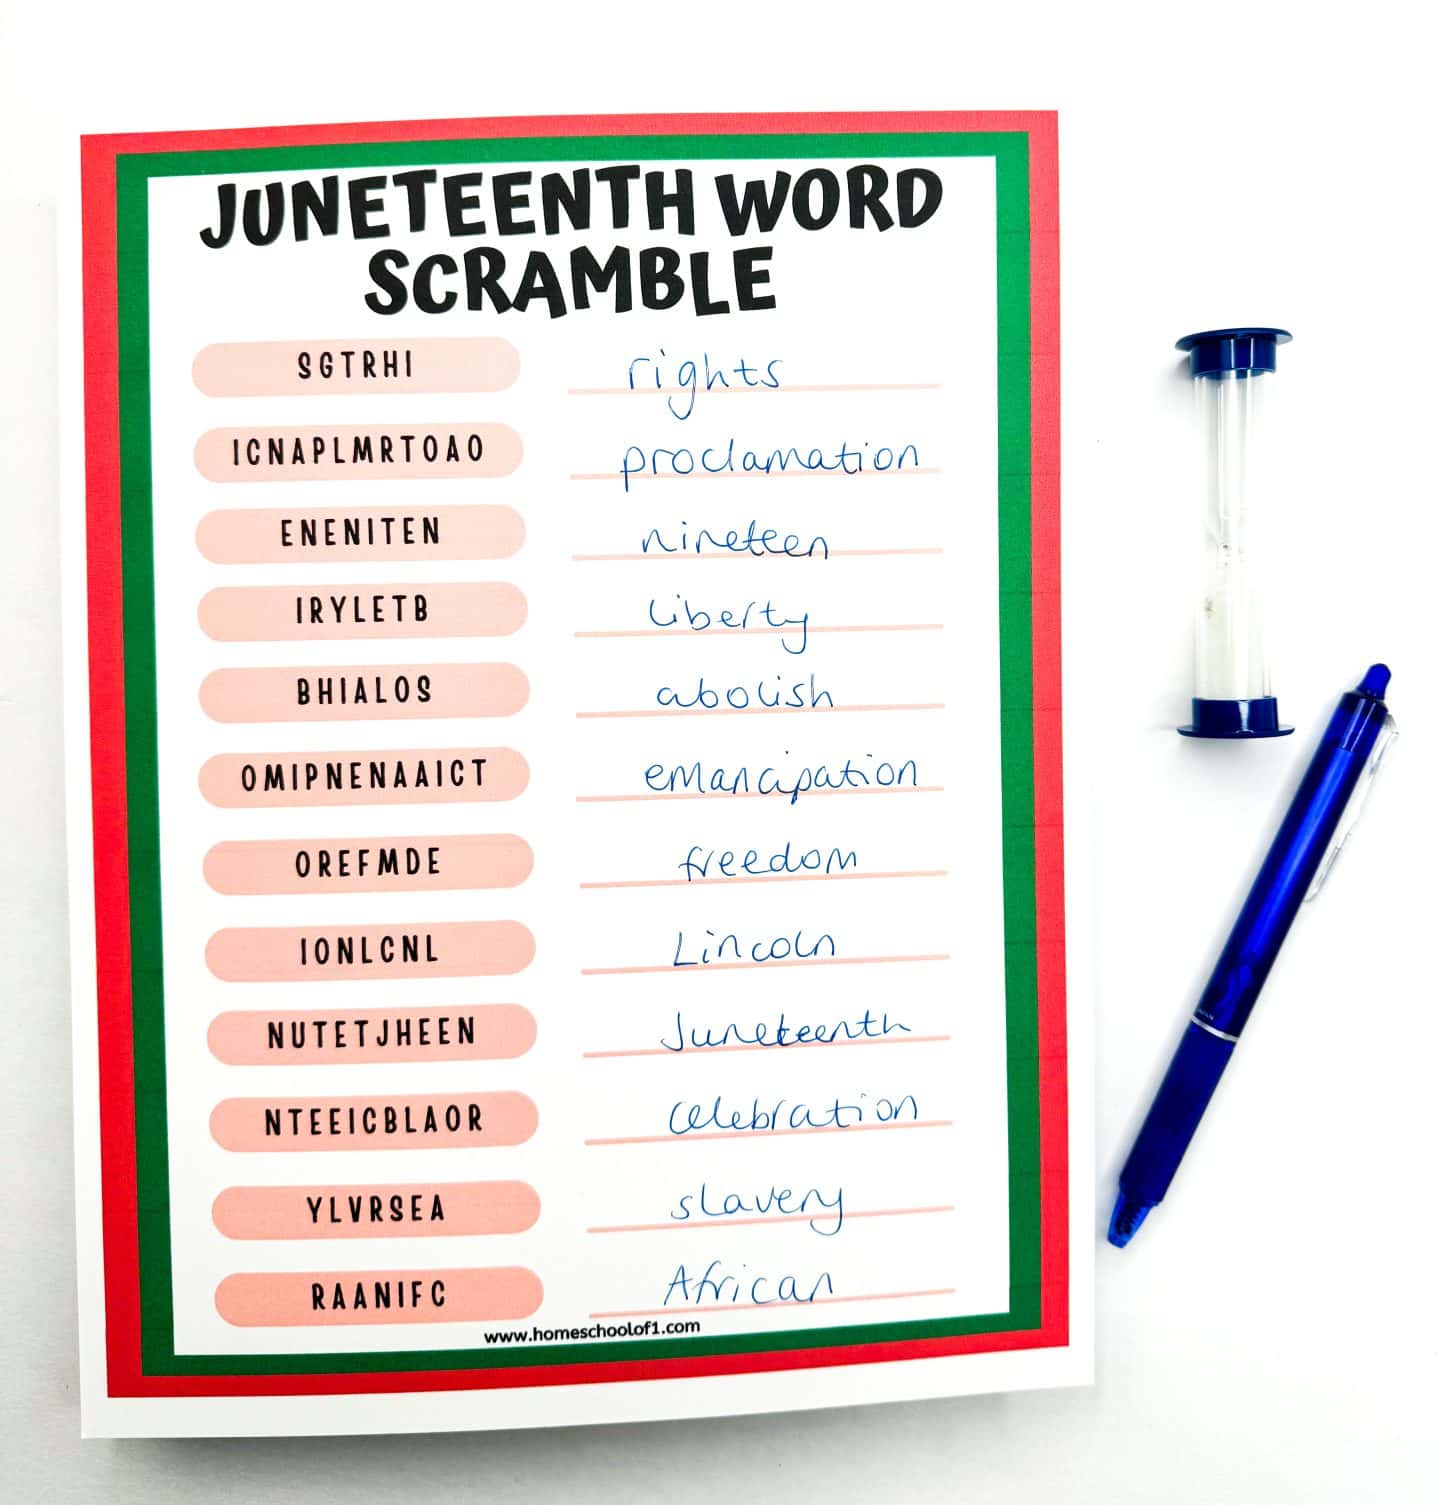 JUNETEENTH WORD
SCRAMBLE
SGTRHI rights
ICNAPLMRTOAO proclamation
ENENITEN nineteen
IRYLETB liberty
BHIALOS abolish
OMIPNENAAICT emancipation
OREFMDE freedom
IONLCNL Lincoln
NUTETJHEEN Juneteenth
NTEEICBLAOR celebration
YLVRSEA slavery
RAANIFC African
www.homeschoolof1.com